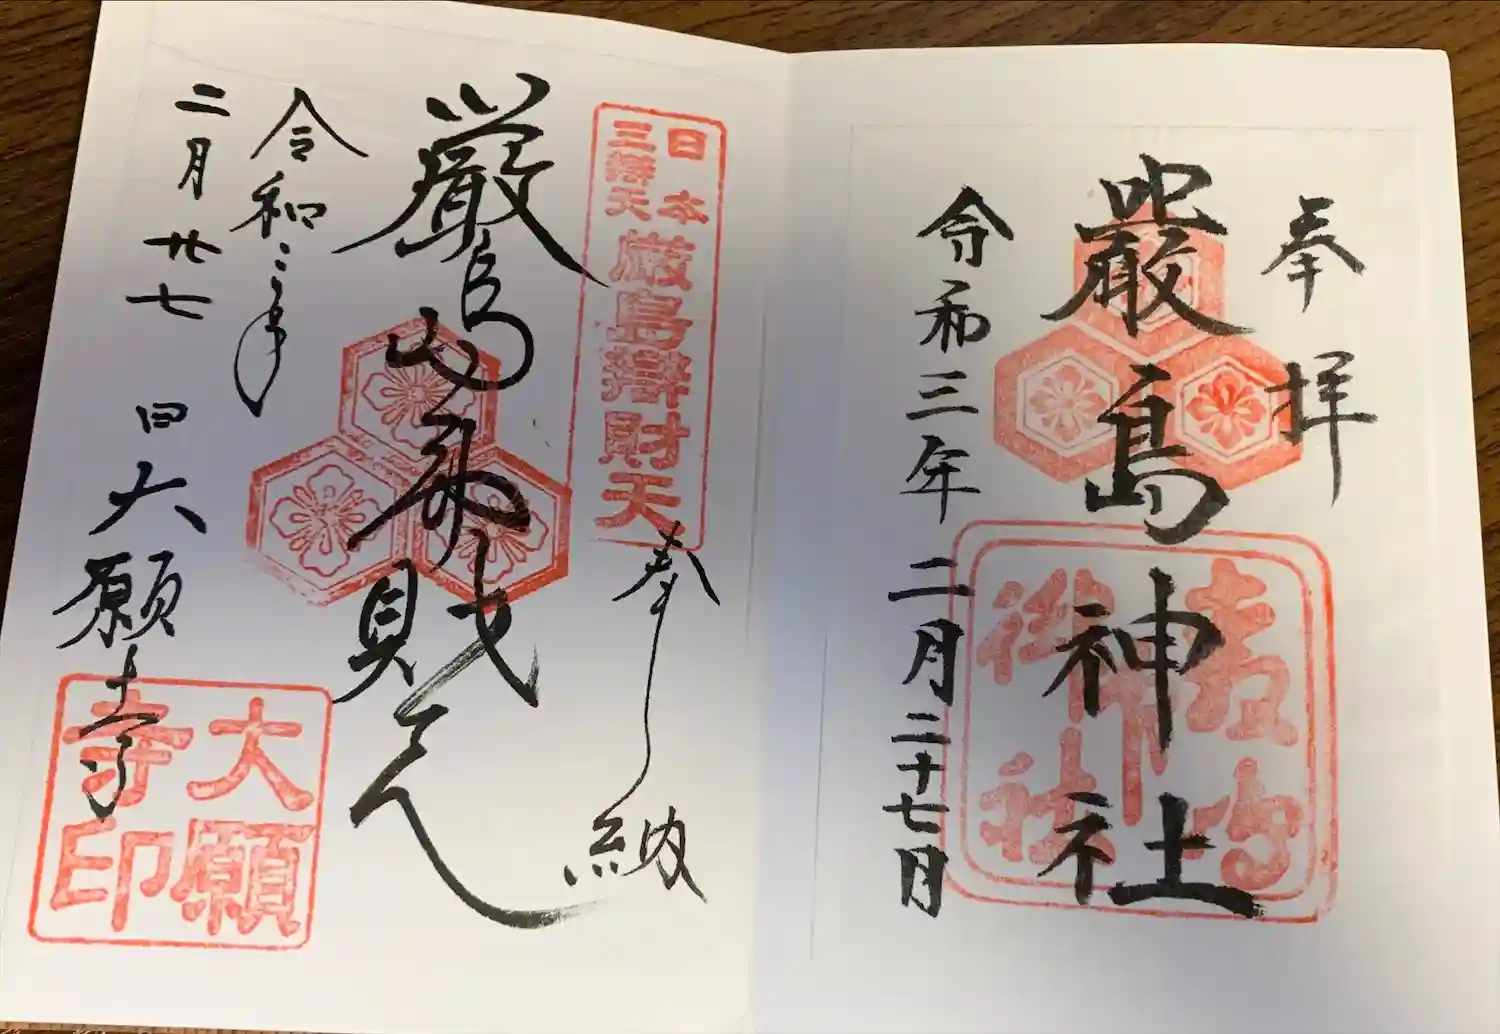 奉拝
嚴島神社
令和三年二月二十七月
日本
三辯天
厳島辯財天
奉納
厳島山辯財天
令和三年
二月廿七日大願寺
大願
寺印